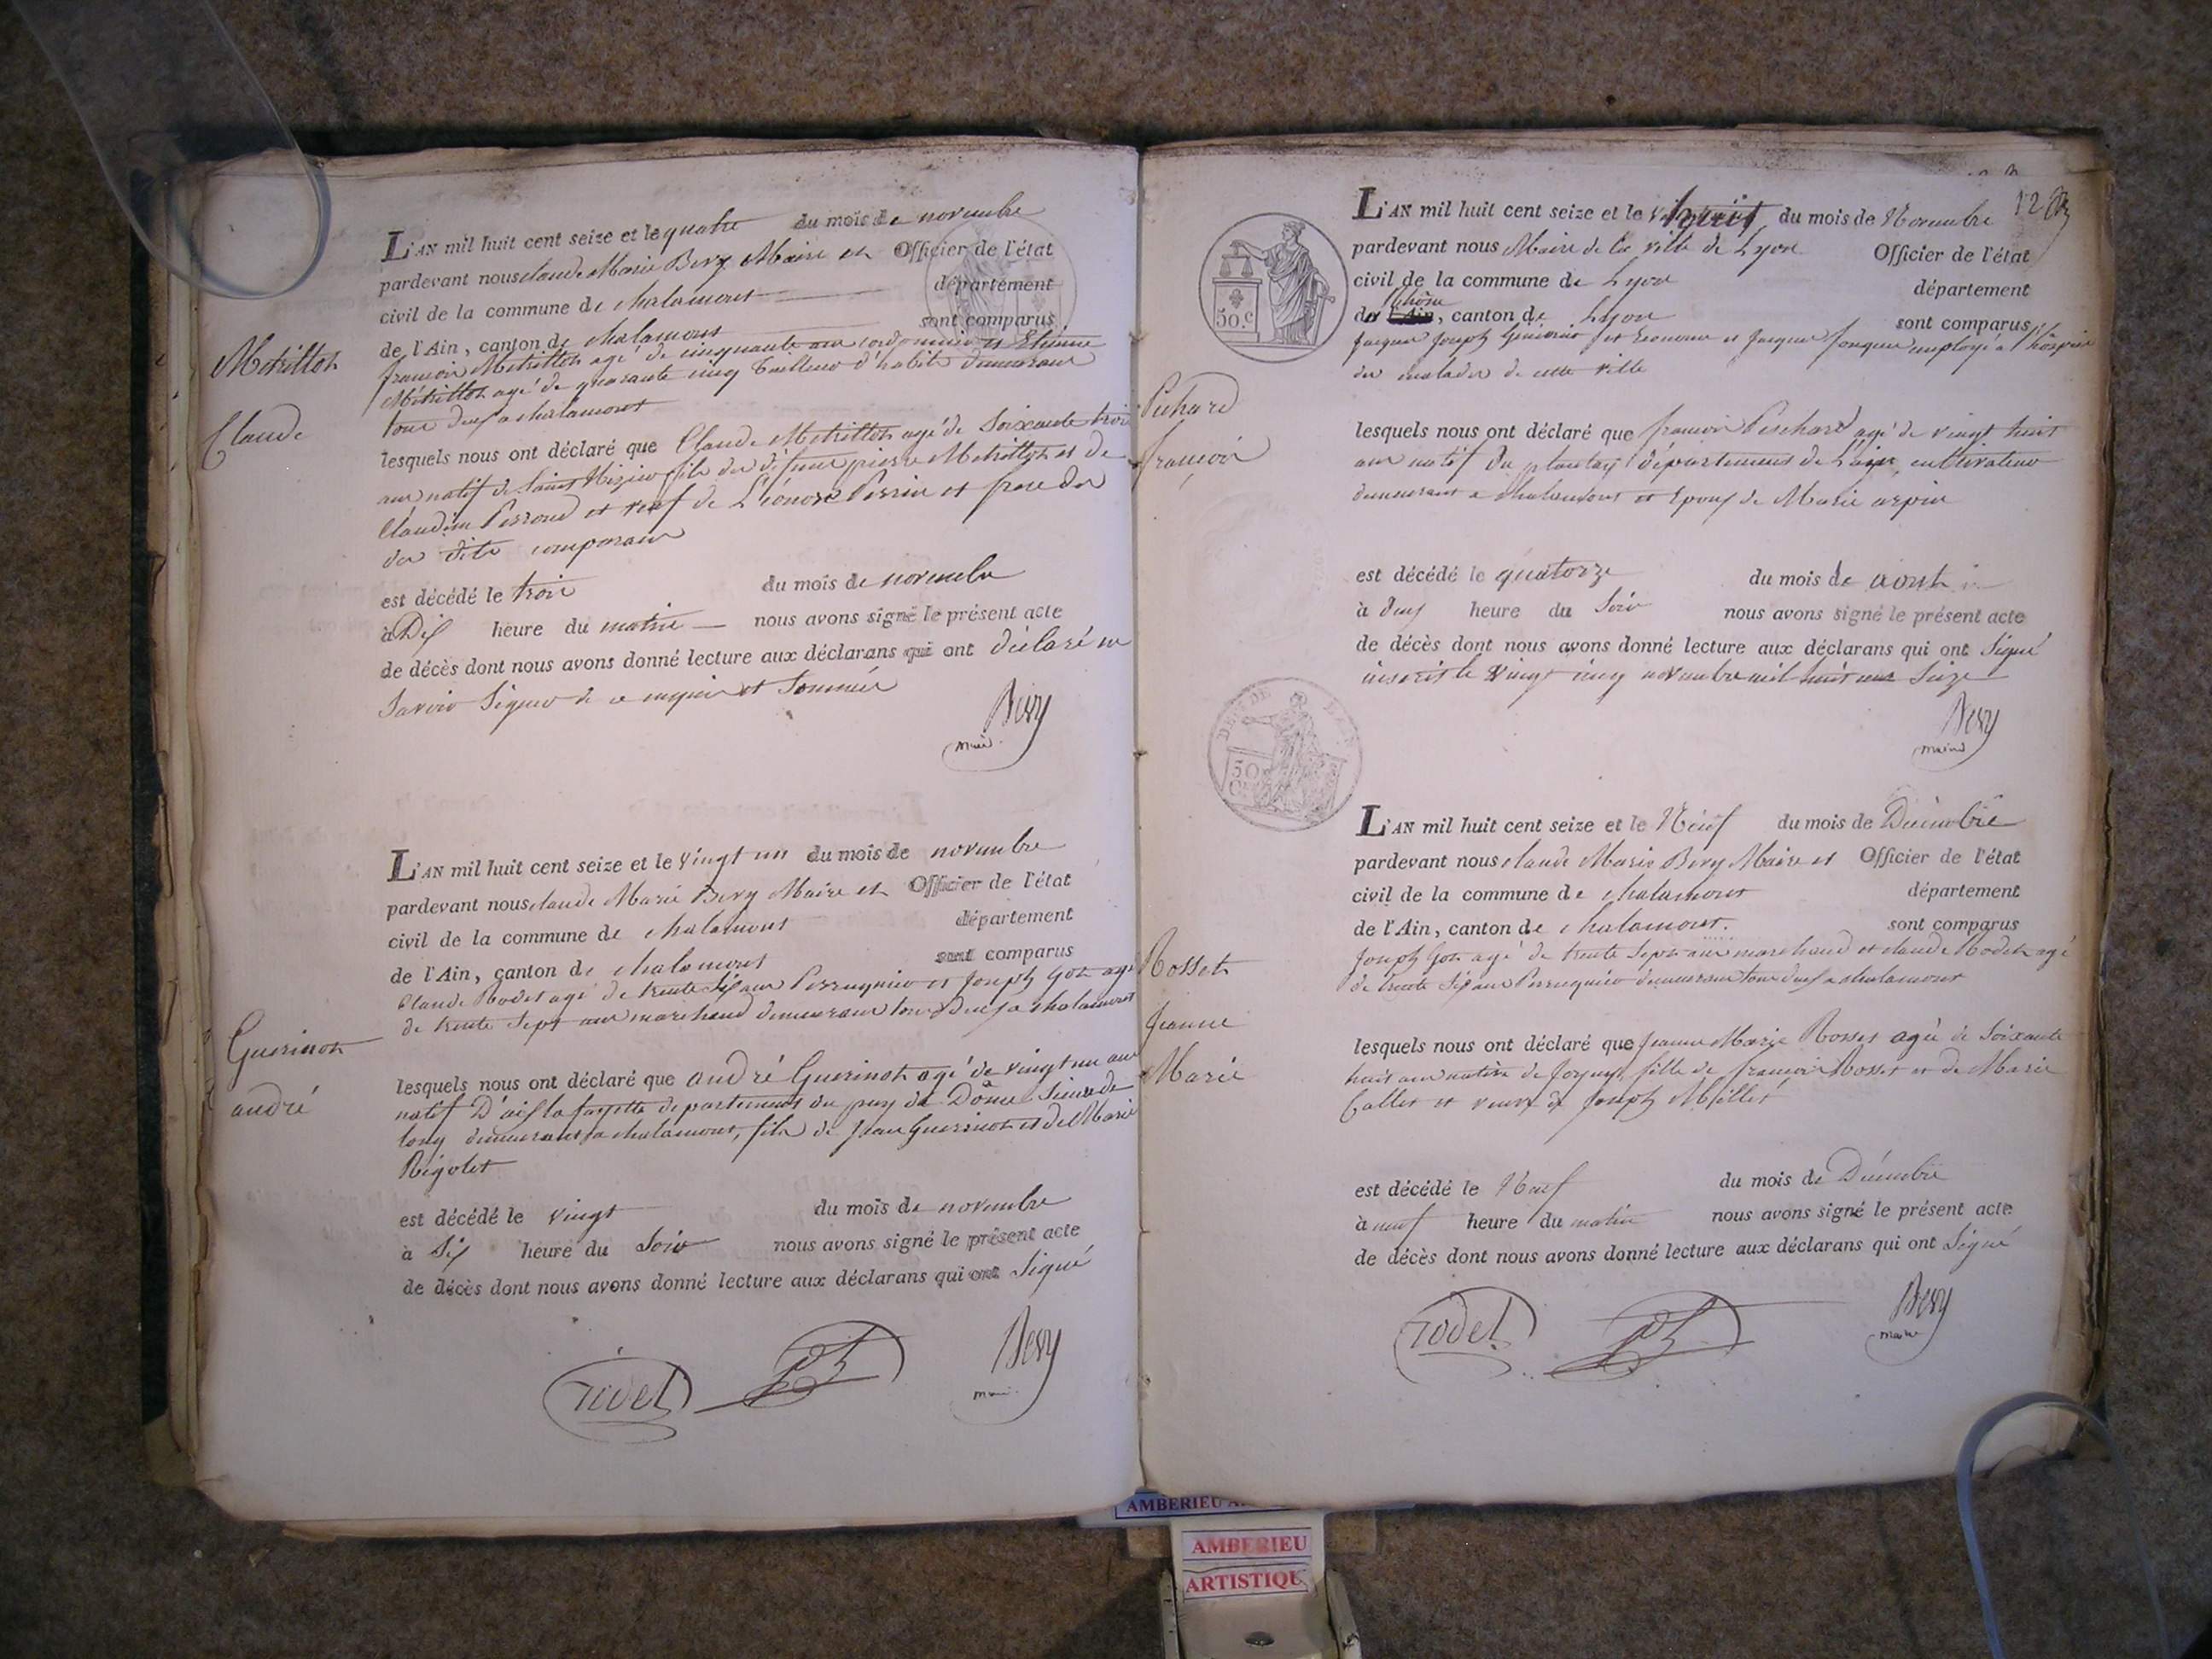 L'AN mil huit cent seize et le quatre du mois de novembre
pardevant nous claude Marie Bevy Maire et Officier de l'état
civil de la commune de chalamont département
de l'Ain, canton de chalamont sont comparus
françois Metrillot agé de cinquante ans cordonnier et Etienne
Métrillot agé de quarante cinq tailleur d'habits demeurant
tous deux a chalamont
Metrillot
Claude
lesquels nous ont déclaré que Claude Metrillot agé de soixante trois
ans natif de saint Nizier fils de défunt pierre Metrillot et de
Claudine Perroud et veuf de Léonore Perrin et frere des
dits comparans
est décédé le trois du mois de novembre
à Dix heure du matin nous avons signé le présent acte
de décès dont nous avons donné lecture aux déclarans qui ont déclaré ne
savoir signer de ce enquis et sommés
Bevy
maire
L'AN mil huit cent seize et le vingt un du mois de novembre
pardevant nous claude Marie Bevy Maire et Officier de l'état
civil de la commune de chalamont département
de l'Ain, canton de chalamont sont comparus
Claude Rodet agé de trente six ans Perruquier et Joseph Gon agé
de trente sept ans marchand demeurant tous deux a chalamont
Guerinot
andré
lesquels nous ont déclaré que andré Guerinot agé de vingt un ans
natif D'aix la fayette departement du puy de Dôme sieur de
long demeurant a chalamont, fils de Jean Guerinot et de Marie
Rigolet
est décédé le vingt du mois de novembre
à six heure du soir nous avons signé le présent acte
de décès dont nous avons donné lecture aux déclarans qui ont signé
rodet
Bevy
maire
12
L'AN mil huit cent seize et le huit du mois de Novembre
pardevant nous Maire de la ville de Lyon Officier de l'état
civil de la commune de Lyon département
du Rhône, canton de Lyon sont comparus
jacques Joseph et jacques employé a l'hospice
des malades de cette ville
50.c
Pichard
françois
lesquels nous ont déclaré que françois Peschard agé de vingt huit
ans natif du plantay département de l'ain, cultivateur
demeurant a chalamont et epoux de Marie arpin
est décédé le quatorze du mois de aoust
à deux heure du soir nous avons signé le présent acte
de décès dont nous avons donné lecture aux déclarans qui ont signé
inscrit le vingt cinq novembre mil huit cent seize
Bevy
maire
DEP. DE L'AIN
50
L'AN mil huit cent seize et le Neuf du mois de Décembre
pardevant nous claude Marie Bevy Maire et Officier de l'état
civil de la commune de chalamont département
de l'Ain, canton de chalamont. sont comparus
Joseph Gon agé de trente sept ans marchand et claude Rodet agé
de trente six ans Perruquier demeurant tous deux a chalamont
Rosset
Jeanne
Marie
lesquels nous ont déclaré que Jeanne Marie Rosset agée de soixante
huit ans native de Joyeux, fille de françois Rosset et de Marie
Callet et veuve de Joseph Millet
est décédé le Neuf du mois de Décembre
à neuf heure du matin nous avons signé le présent acte
de décès dont nous avons donné lecture aux déclarans qui ont signé
rodet
Bevy
maire
AMBERIEU
AMBERIEU
ARTISTIQU